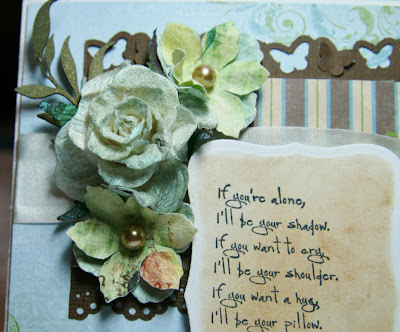 If you're alone,
I'll be your shadow.
If you want to cry,
I'll be your shoulder.
If you want a hug,
I'll be your pillow.